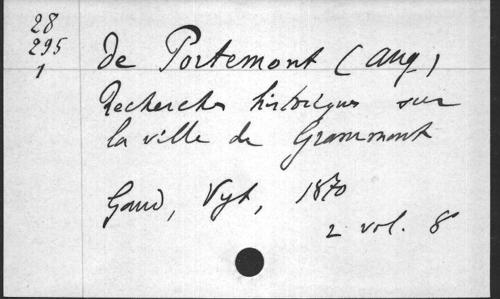 28
295
1
de Portemont (Aug)
Recherches historiques sur
la ville de Grammont
Gand, Vyt, 1870
2 vol. 8°